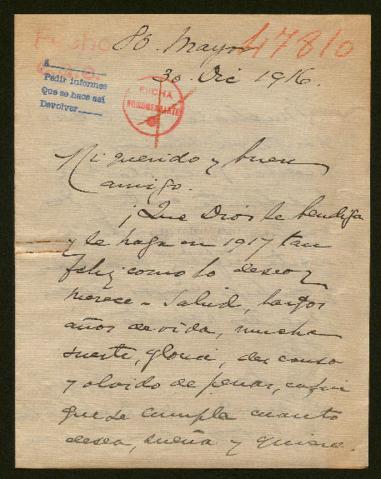 85. Mayor 47810
30. Dic 1916.
Á
Pedir informes
Que se hace así
Devolver
FICHA
Mi querido y buen
amigo.
¡Que Dios te bendiga
y te haga en 1917 tan
feliz como lo deseo y
merece - Salud, largos
años de vida, mucha
suerte, gloria, descanso
y olvido de penas, en fin
que se cumpla cuanto
desea, sueña y quiere.